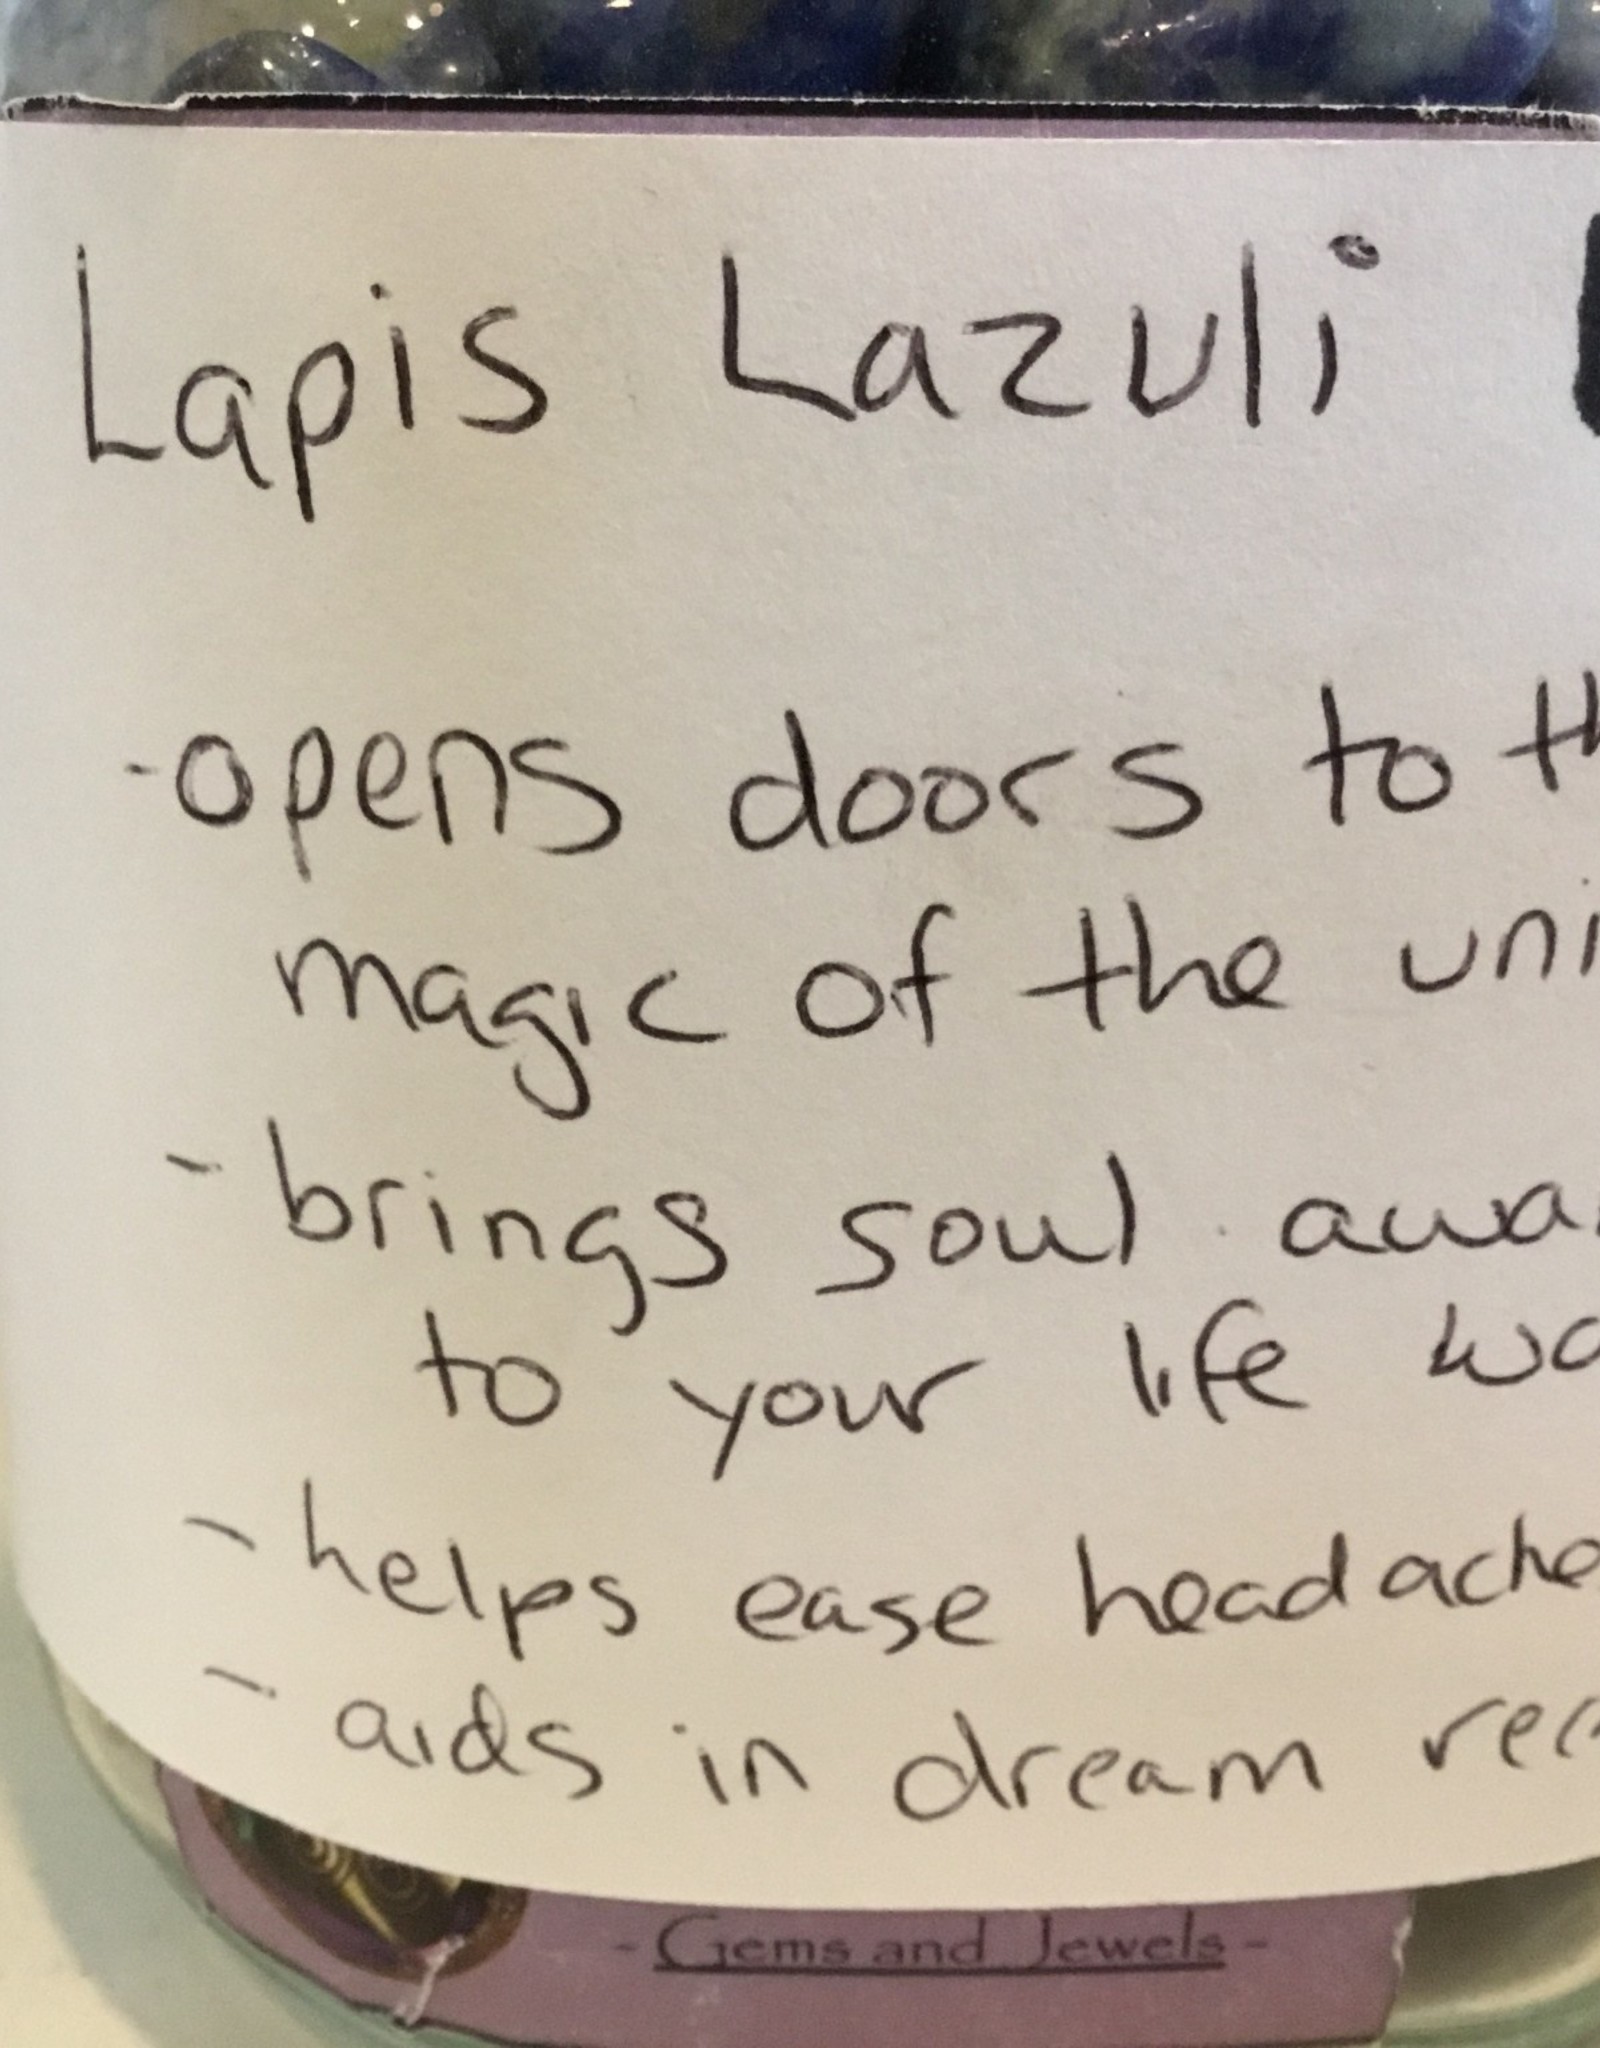 Lapis Lazuli
-opens doors to th
magic of the uni
- brings soul awar
to your life wo
- helps ease headache
- aids in dream rec
- Gems and Jewels -